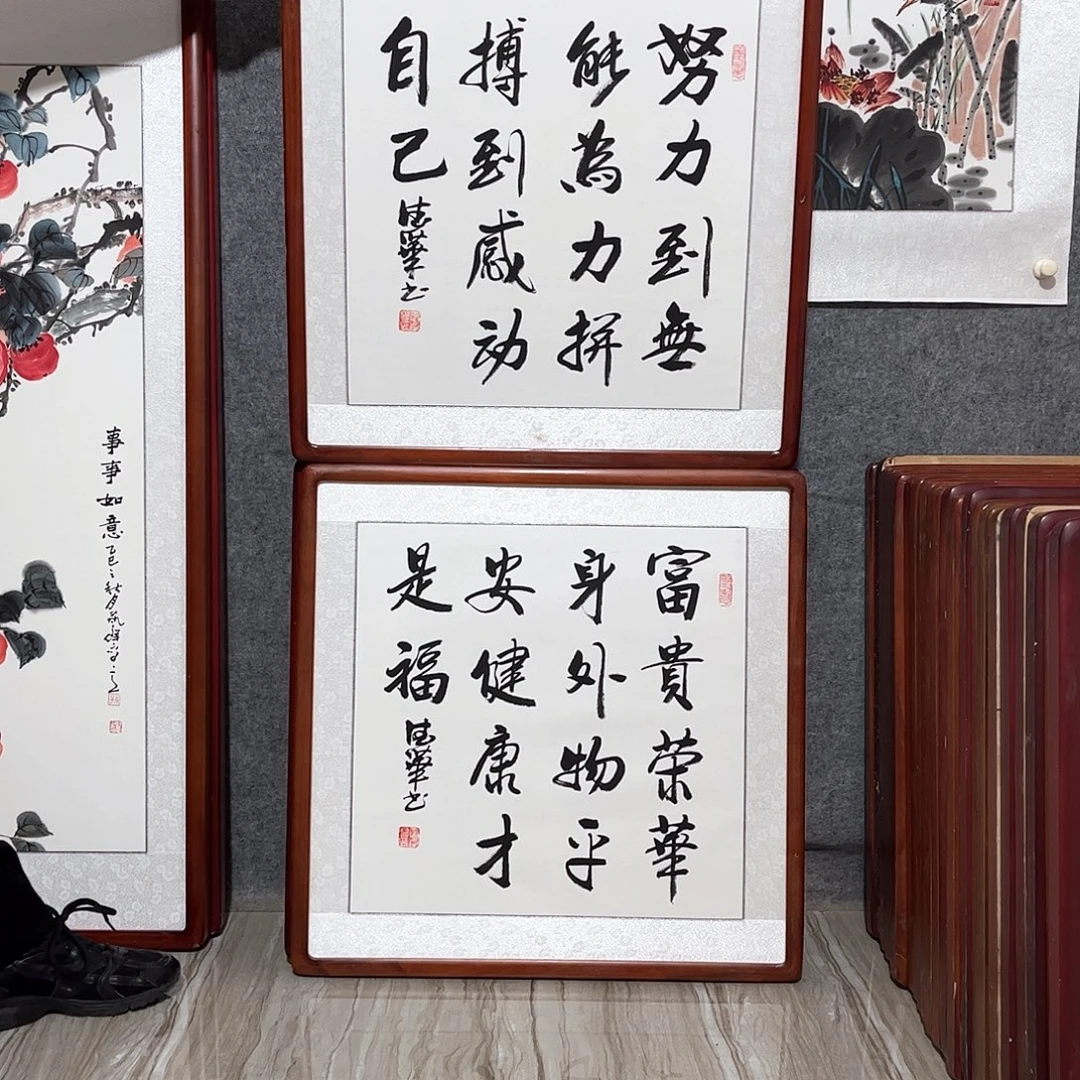 努力到無
能為力拼
搏到感动
自己
德華书
富貴荣華
身外物平
安健康才
是福
德華书
事事如意